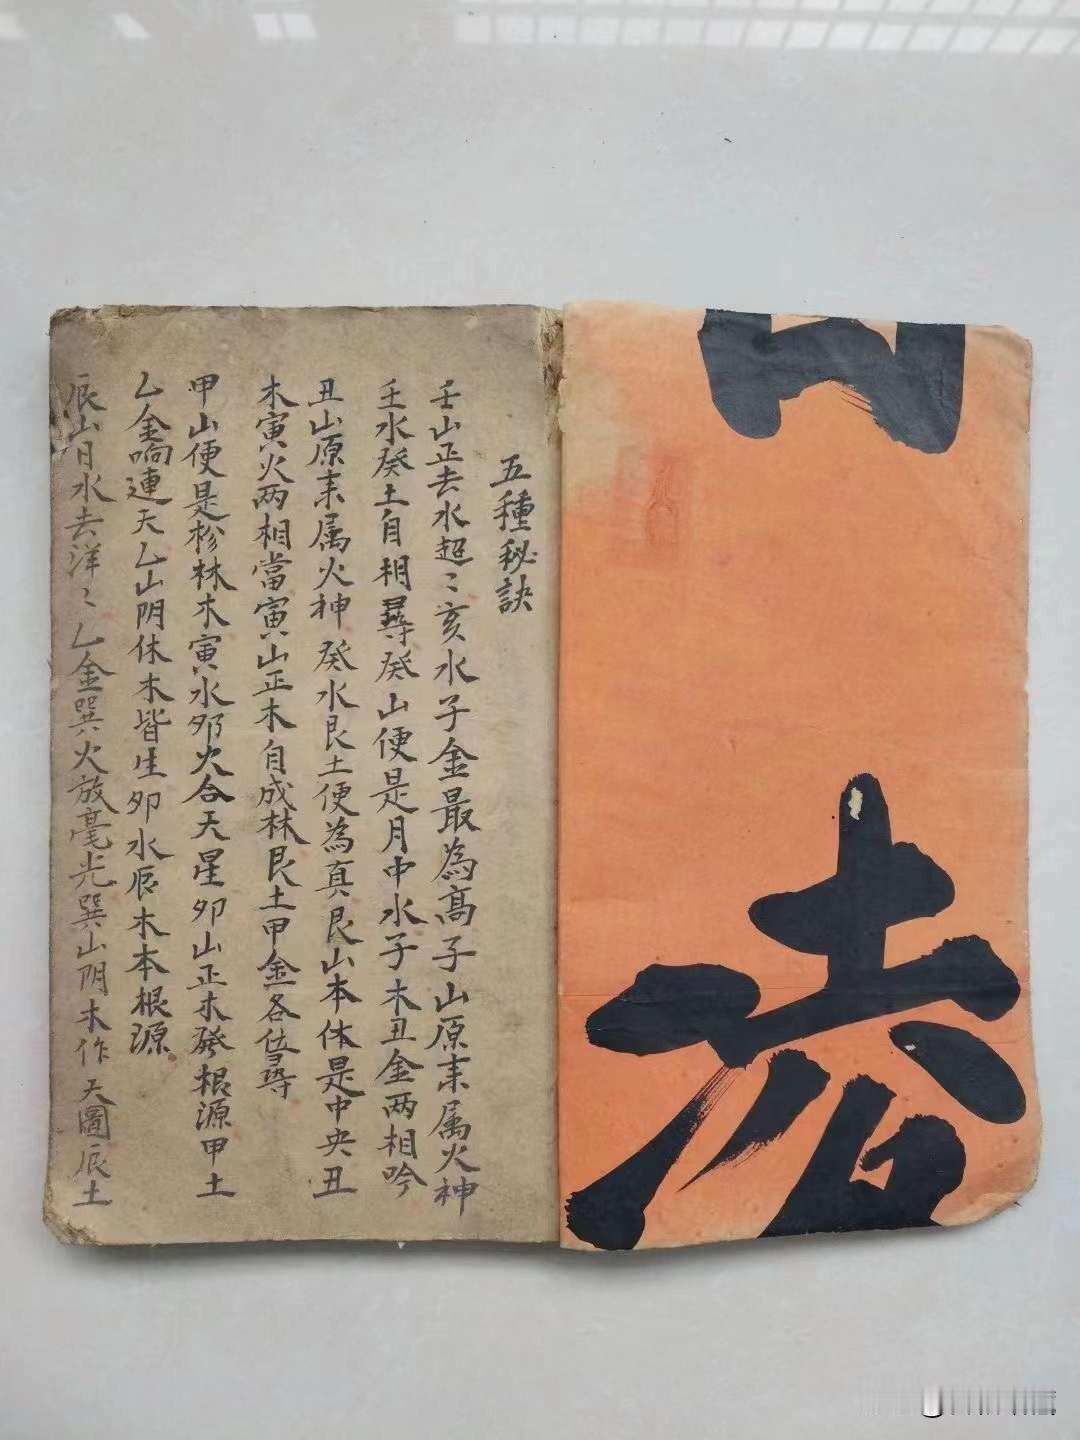 五種秘訣
壬山正去水超〻亥水子金最為高子山原来属火神
壬水癸土自相尋癸山便是月中水子木丑金两相吟
丑山原来属火神癸水艮土便為真艮山本体是中央丑
木寅火两相當寅山正木自成林艮土甲金各位尋
甲山便是松林木寅水夘火合天星夘山正木發根源甲土
乙金响連天乙山阴休木皆生夘水辰木本根源
辰山日水去洋〻乙金巽火放毫光巽山阴木作天圖辰土